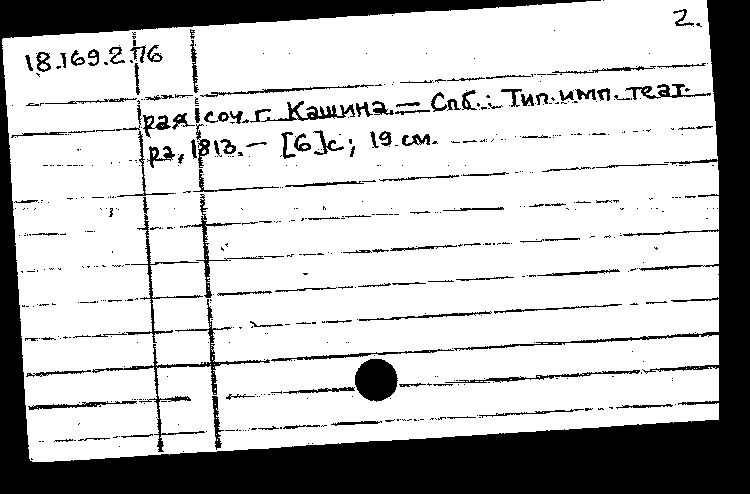 2.
18.169.2.76
рая соч. г. Кашина. — Спб.: Тип. имп. театра,
ра, 1813. — [6]с; 19 см.